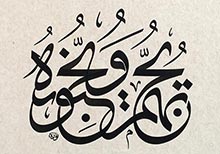 يحبهم ويحبونه